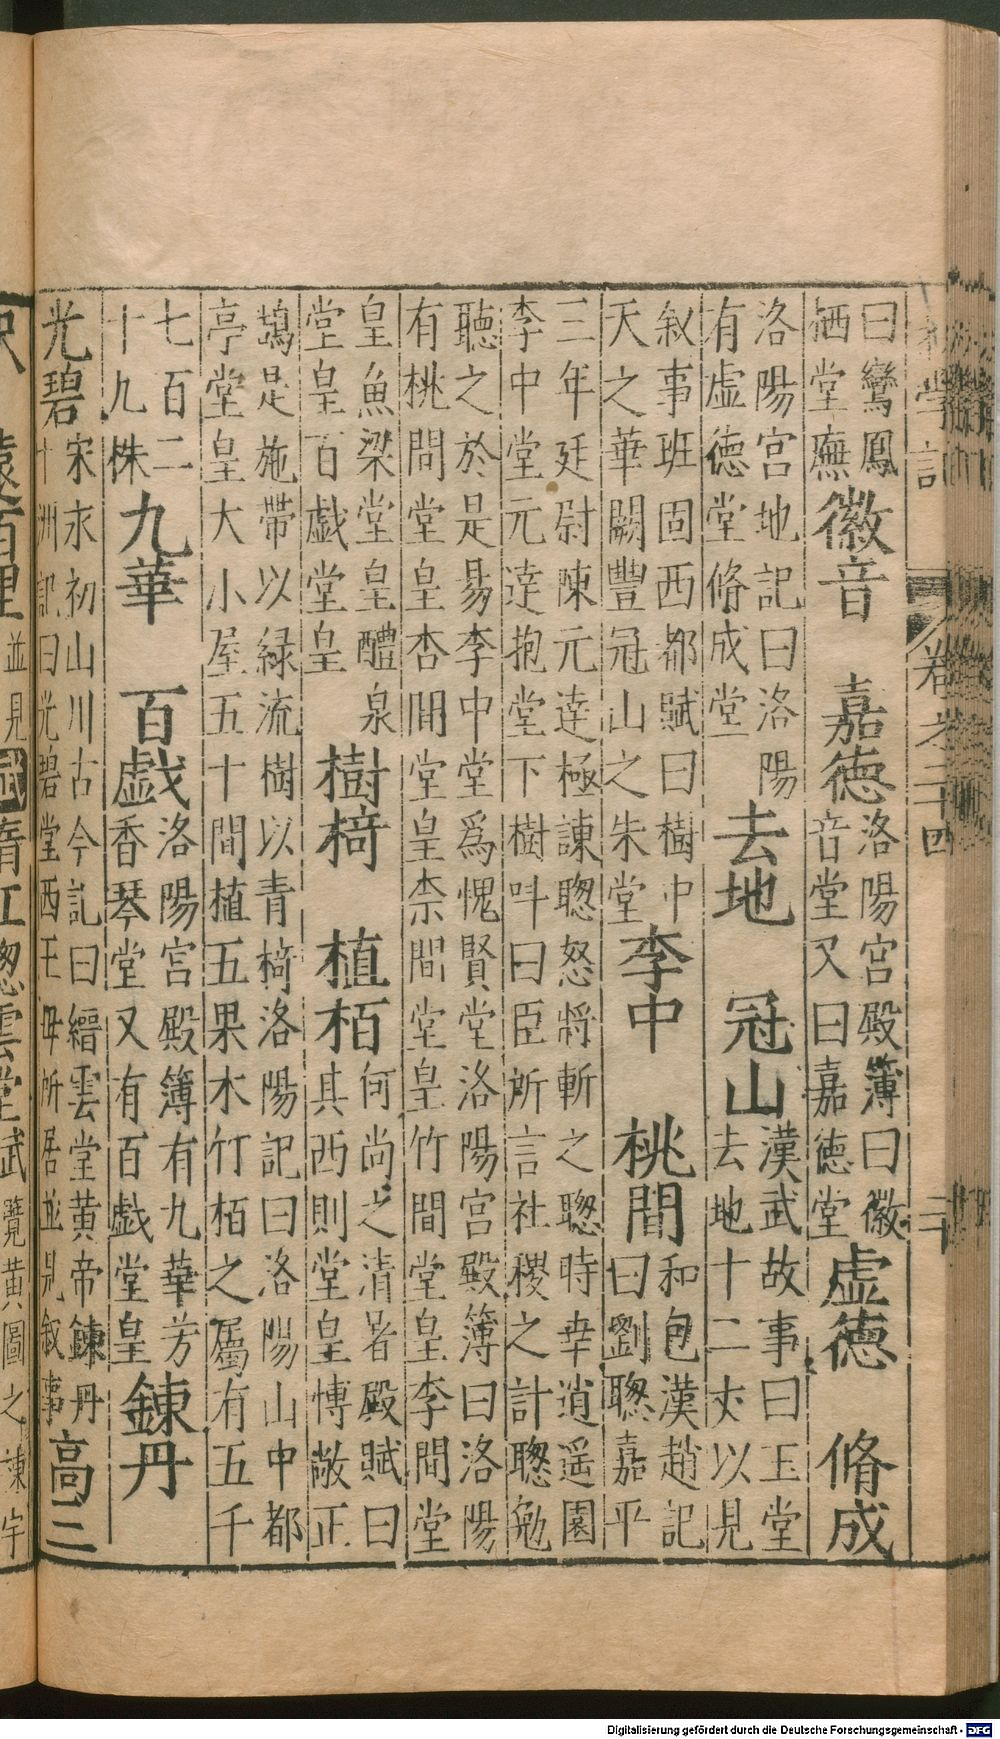 曰鸞鳳
栖堂廡
徽音　嘉德
洛陽宮殿簿曰徽
音堂又曰嘉德堂
虛德　脩成
洛陽宮地記曰洛陽
有虛德堂脩成堂
去地　冠山
漢武故事曰玉堂
去地十二丈以見
敘事班固西都賦曰樹中
天之華闕豐冠山之朱堂
李中　桃間
和包漢趙記
曰劉聰嘉平
三年廷尉陳元達極諫聰怒將斬之聰時幸逍遥園
李中堂元達抱堂下樹叫曰臣所言社稷之計聰勉
聽之於是易李中堂爲愧賢堂洛陽宮殿簿曰洛陽
有桃間堂皇杏間堂皇柰間堂皇竹間堂皇李間堂
皇魚梁堂皇醴泉
堂皇百戯堂皇
樹椅　植栢
何尚之清暑殿賦曰
其西則堂皇博敞正
鵠是施帶以緑流樹以青椅洛陽記曰洛陽山中都
亭堂皇大小屋五十間植五果木竹栢之屬有五千
七百二
十九株
九華　百戯
洛陽宮殿簿有九華芳
香琴堂又有百戯堂皇
鍊丹
光碧
宋永初山川古今記曰縉雲堂黄帝鍊丹
十洲記曰光碧堂西王母所居並見敘事
高二
卷之二十四
遠百里
並見
隋江總雲堂
覽黄圖之棟宇
Digitalisierung gefördert durch die Deutsche Forschungsgemeinschaft - DFG